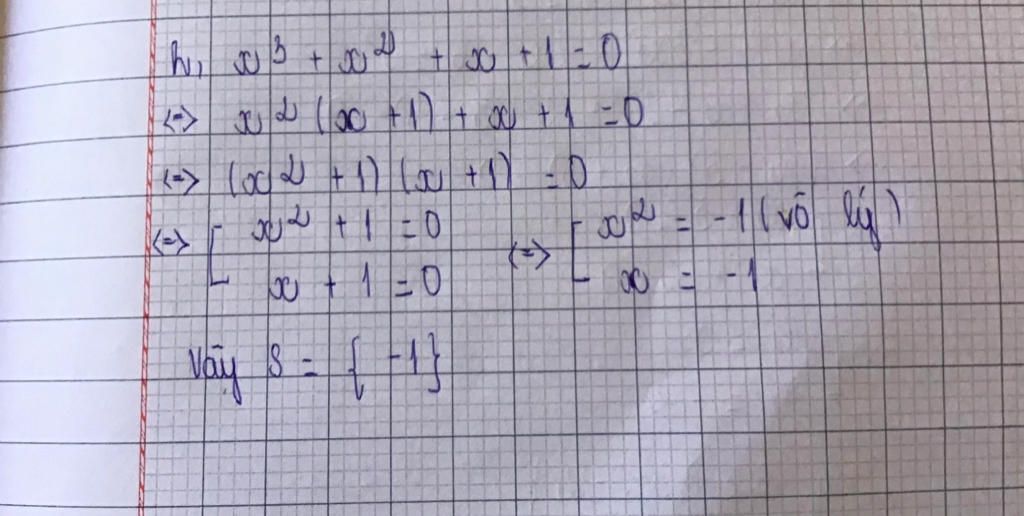 h, x³ + x² + x + 1 = 0
<=> x² (x + 1) + x + 1 = 0
<=> (x² + 1) (x + 1) = 0
<=> [ x² + 1 = 0 <=> [ x² = -1 (vô lý)
x + 1 = 0 x = -1
Vậy S = { -1 }